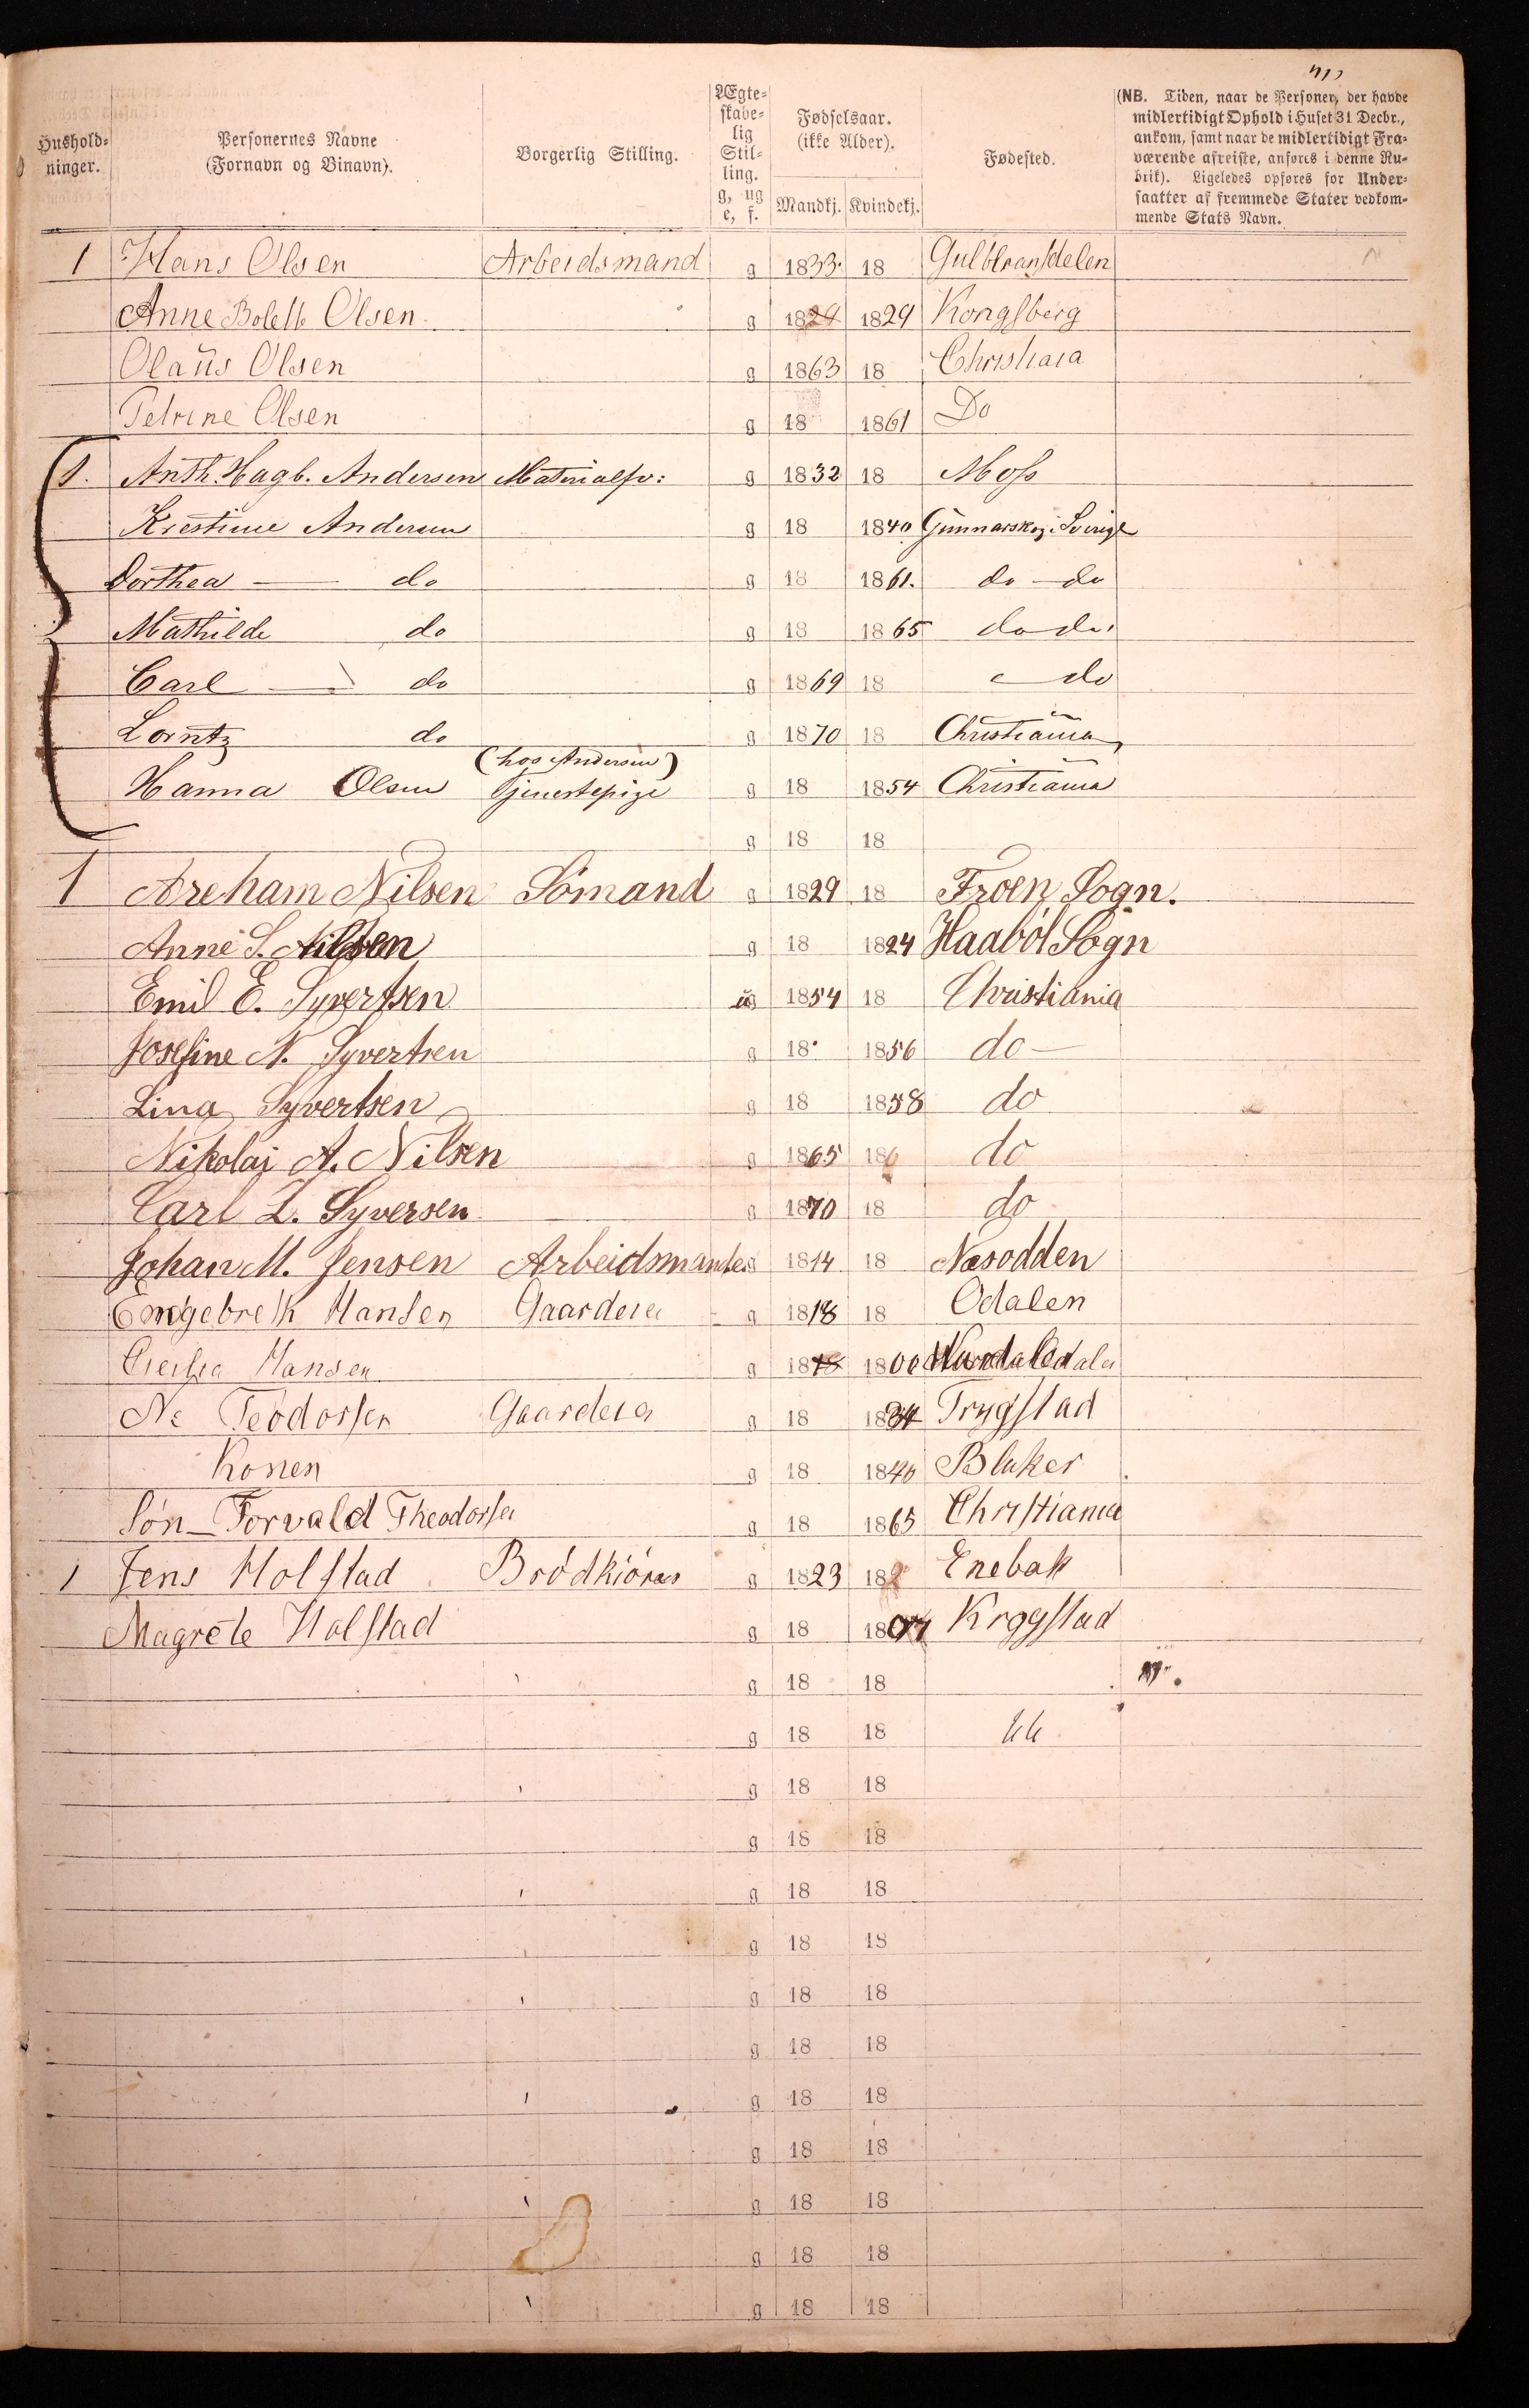 Hushold-
ninger.
Personernes Navne
(Fornavn og Binavn).
Borgerlig Stilling.
Ægte-
skabe-
lig
Stil-
ling.
g, ug
e, f.
Fødselsaar.
(ikke Alder).
Mandkj. Kvindekj.
Fødested.
(NB. Tiden, naar de Personer, der havde
midlertidigt Ophold i Huset 31 Decbr.,
ankom, samt naar de midlertidigt Fra-
værende afreiste, anføres i denne Ru-
brik). Ligeledes opføres for Under-
saatter af fremmede Stater vedkom-
mende Stats Navn.
1 Hans Olsen Arbeidsmand g 1833 18 Gulbransdelen
Anne Bolette Olsen g 1829 1829 Kongsberg
Olaüs Olsen g 1863 18 Christiaia
Petrine Olsen g 18 1861 Do
1. Anth. Hagb. Andersen Materialfv: g 1832 18 Moss
Krestine Andersen g 18 1840 Gunnarskog i Sverige
Dorthea — do g 18 1861. do — do
Mathilde do g 18 1865 do do
Carl — do g 1869 18 — do
Lorntz do g 1870 18 Christiania
(hos Andersen)
Hanna Olsen Tjenestepige g 18 1854 Christiania
g 18 18
1 Areham Nilsen Sómand g 1829 18 Froen Sogn.
Anne S. Nilsen g 18 1824 Haaból Sogn
Emil E. Syvertsen ug 1854 18 Christiania
Josefine N. Syvertsen g 18 1856 do —
Lina Syvertsen g 18 1858 do
Nikolai A. Nilsen g 1865 186 do
Carl L. Syversen g 1870 18 do
Johan M. Jensen Arbeidsmand g 1814 18 Næsodden
Engebreth Hansen Gaardeier g 1818 18 Odalen
Hansen g 1818 1800 Odalen
Ne Teodorsen Gaardeier g 18 1834 Trygstad
Konen g 18 1840 Blaker
Són — Torvald Theodorsen g 18 1865 Christiania
1 Jens Holstad Bródkiórer g 1823 182 Enebak
Magrete Holstad g 18 18 Krogstad
g 18 18
g 18 18
g 18 18
g 18 18
g 18 18
g 18 18
g 18 18
g 18 18
g 18 18
g 18 18
g 18 18
g 18 18
g 18 18